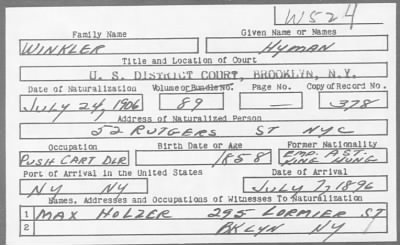 W524
Family Name Given Name or Names
WINKLER HYMAN
Title and Location of Court
U. S. DISTRICT COURT, BROOKLYN, N.Y.
Date of Naturalization Volume or Bundle No. Page No. Copy of Record No.
JULY 24, 1906 89 — 378
Address of Naturalized Person
52 RUTGERS ST NYC
Occupation Birth Date or Age Former Nationality
PUSH CART DLR 1858 EMP. AST. KING HUNG
Port of Arrival in the United States Date of Arrival
NY NY JULY 7, 1896
Names, Addresses and Occupations of Witnesses To Naturalization
1 MAX HOLZER 295 LORMIER ST
2 BKLYN NY